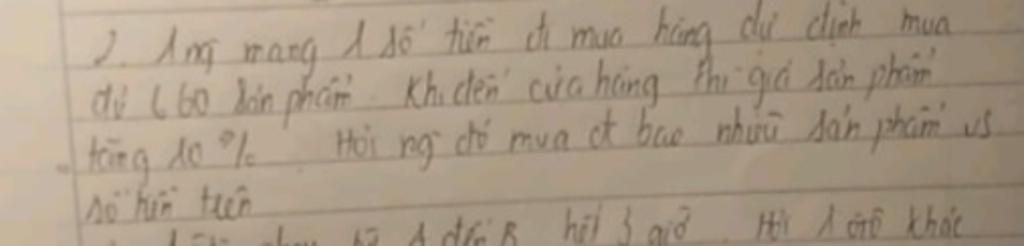 2. 1 ng mang 1 số tiền đi mua hàng dự định mua
đủ 660 sản phẩm. Khi đến cửa hàng thì giá sản phẩm
tăng 10 %. Hỏi ng đó mua đt bao nhiêu sản phẩm vs
số tiền trên
A đến B hết 3 giờ. Hỏi 1 ô tô khác